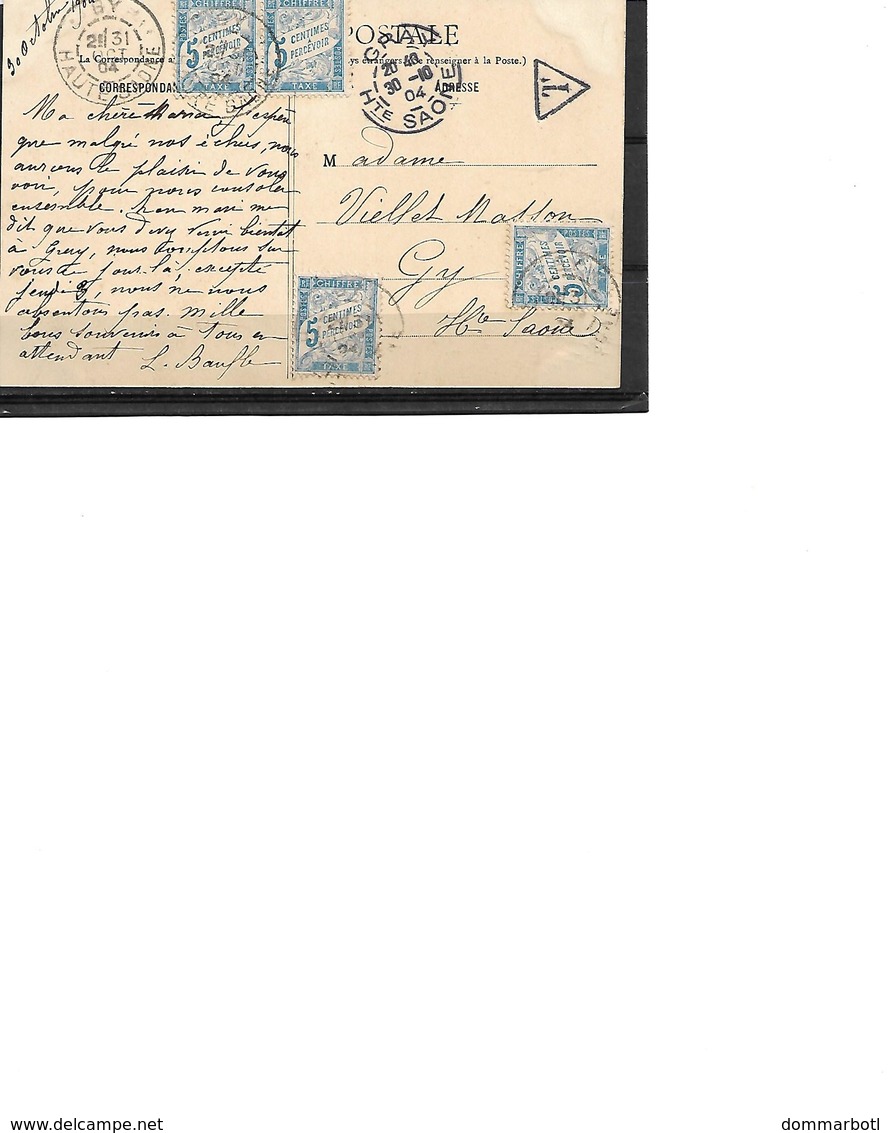 30 Octobre 1904
GY
2E 31
OCT
04
HAUTE SAONE
CHIFFRE
5 CENTIMES À PERCEVOIR
TAXE
POSTES
CHIFFRE
5 CENTIMES À PERCEVOIR
TAXE
POSTES
POSTALE
GRAY
20 40
30 -10
04
HTE SAÔNE
T
La Correspondance a
ys étrangers. (Se renseigner à la Poste.)
CORRESPONDAN
ADRESSE
Ma chère Maria, J'espère
que malgré nos échecs, nous
aurons le plaisir de vous
voir, pour nous consoler
ensemble. Mon mari me
dit que vous devez venir bientôt
à Gray, nous comptons sur
vous ce jour-là, excepté
jeudi 3, nous ne nous
absentons pas. Mille
bons souvenirs à tous en
attendant L.
Madame
Viellet Masson
Gy
Hte Saône
CHIFFRE
5 CENTIMES À PERCEVOIR
TAXE
POSTES
CHIFFRE
5 CENTIMES À PERCEVOIR
TAXE
POSTES
www.delcampe.net
dommarbotl